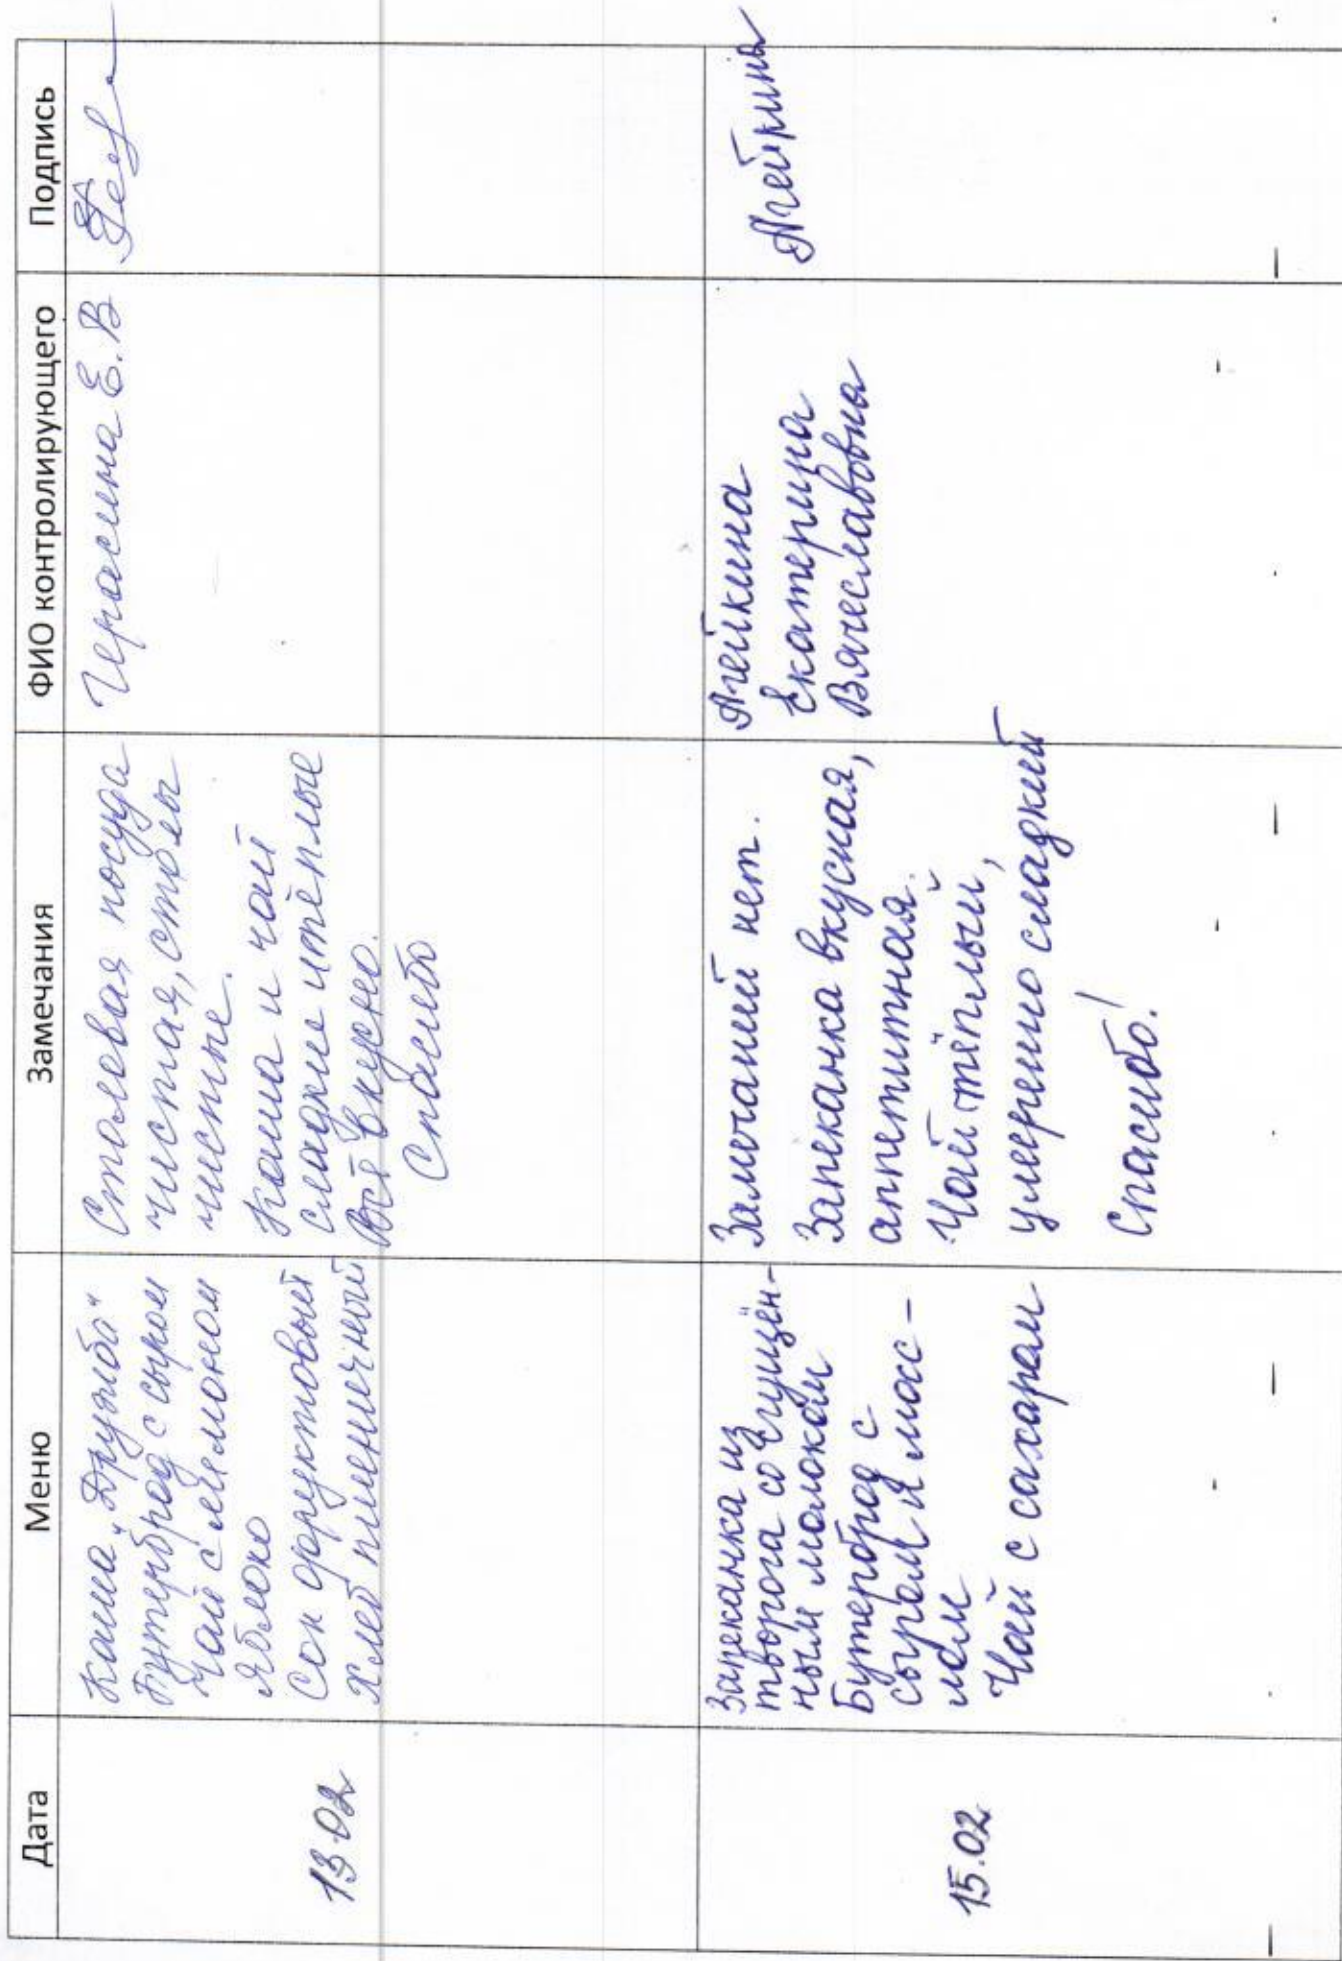 Дата Меню Замечания ФИО контролирующего Подпись
13.02
Каша „Дружба"
Бутерброд с сыром
Чай с лимоном
Яблоко
Сок фруктовый
Хлеб пшеничный
Столовая посуда
чистая, столы
чистые.
Каша и чай
сладкие и тёплые
Всё вкусно.
Спасибо
Герасина Е.В
15.02
Запеканка из
творога со сгущён-
ным молоком
Бутерброд с
сыром и мас-
лом
Чай с сахаром
Замечаний нет.
Запеканка вкусная,
аппетитная.
Чай тёплый,
умеренно сладкий
Спасибо!
Агейкина
Екатерина
Вячеславовна
Агейкина